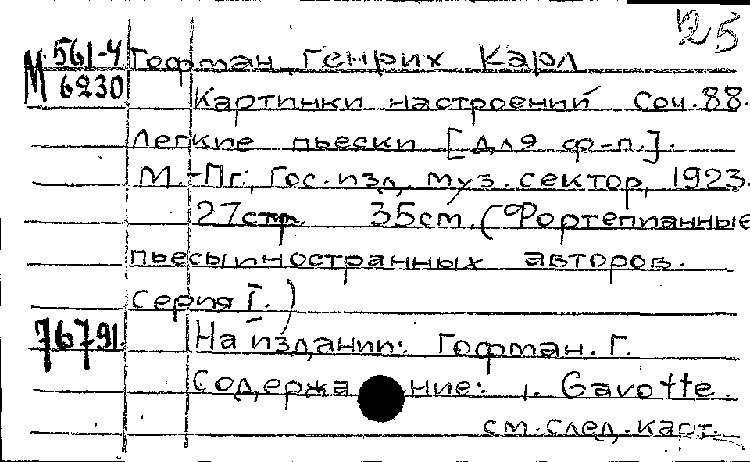 25
М 561-4 Гофман, Генрих Карл
6230
Картинки настроений Соч. 88.
Легкие пьески [для ф-п.].
М.-Пг., Гос. изд. муз. сектор, 1923.
27стр. 35см. (Фортепианные
пьесы иностранных авторов.
Серия I.)
76791. На издании: Гофман. Г.
Содержание: 1. Gavotte.
см. след. карт.